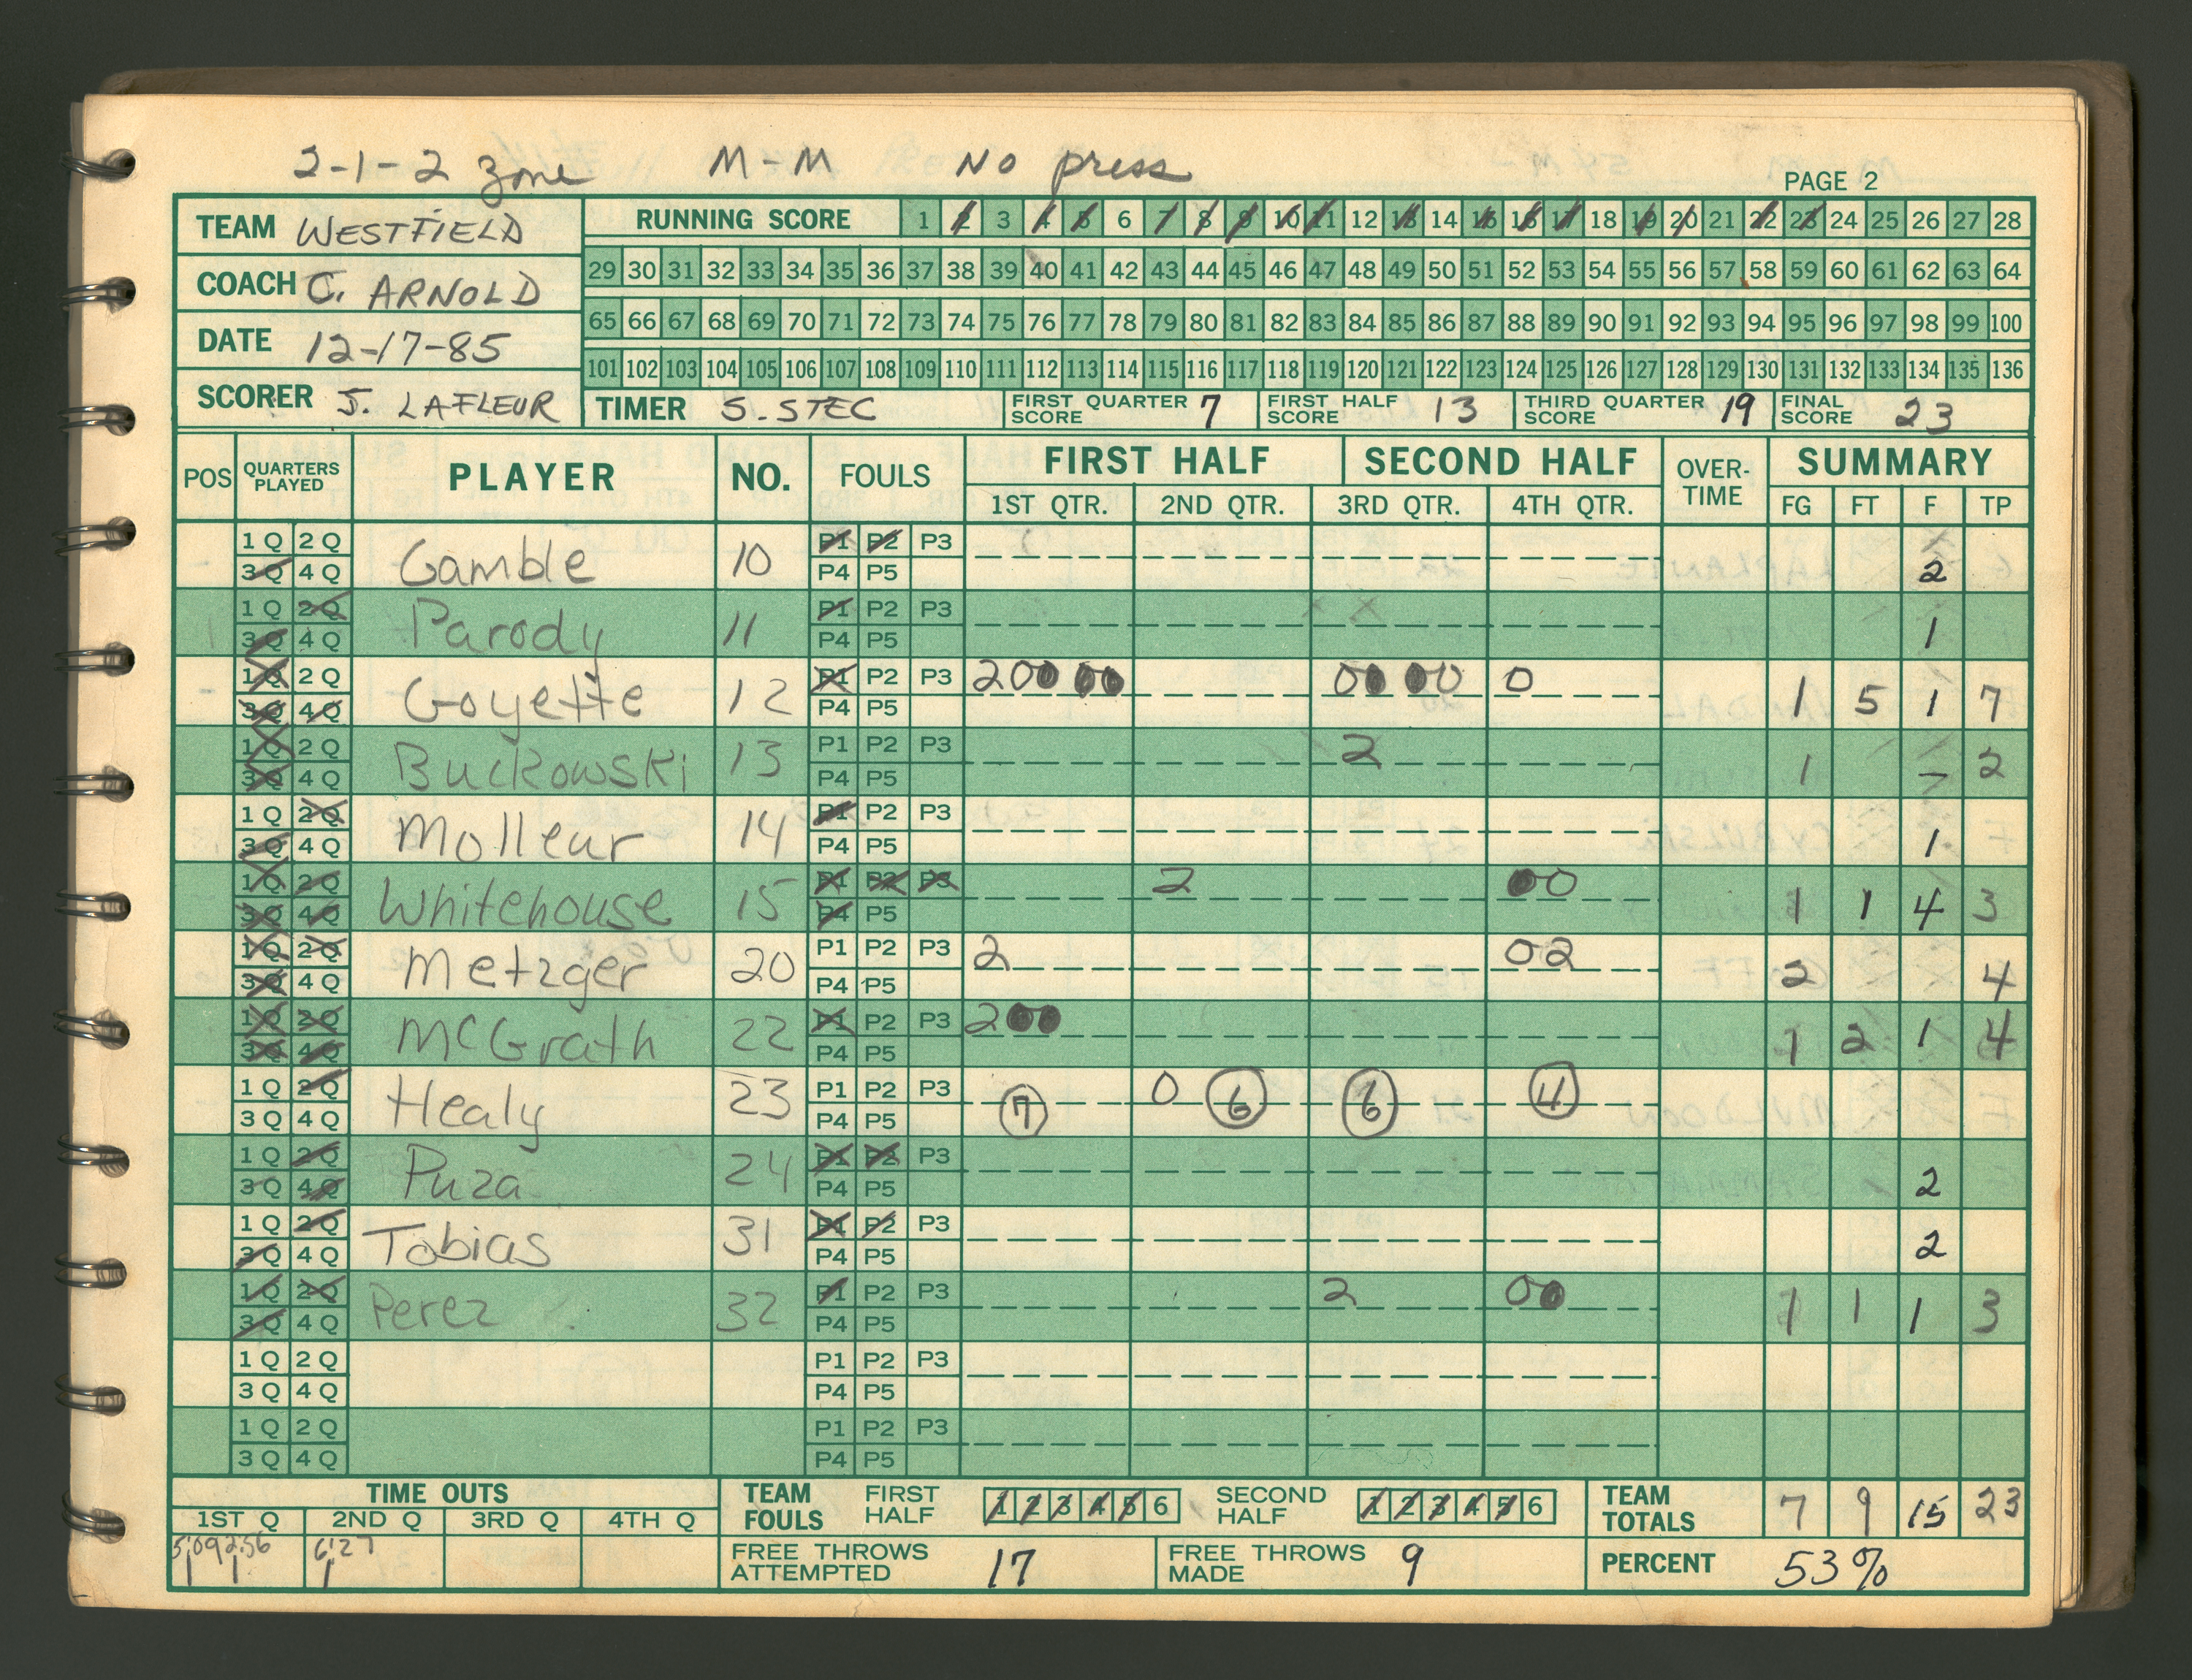 2-1-2 zone M-M No press
PAGE 2
TEAM WESTFIELD
COACH C. ARNOLD
DATE 12-17-85
SCORER J. LAFLEUR
RUNNING SCORE 1 2 3 4 5 6 7 8 9 10 11 12 13 14 15 16 17 18 19 20 21 22 23 24 25 26 27 28
29 30 31 32 33 34 35 36 37 38 39 40 41 42 43 44 45 46 47 48 49 50 51 52 53 54 55 56 57 58 59 60 61 62 63 64
65 66 67 68 69 70 71 72 73 74 75 76 77 78 79 80 81 82 83 84 85 86 87 88 89 90 91 92 93 94 95 96 97 98 99 100
101 102 103 104 105 106 107 108 109 110 111 112 113 114 115 116 117 118 119 120 121 122 123 124 125 126 127 128 129 130 131 132 133 134 135 136
TIMER S. STEC FIRST QUARTER SCORE 7 FIRST HALF SCORE 13 THIRD QUARTER SCORE 19 FINAL SCORE 23
POS QUARTERS PLAYED PLAYER NO. FOULS FIRST HALF SECOND HALF OVER-TIME SUMMARY
1ST QTR. 2ND QTR. 3RD QTR. 4TH QTR. FG FT F TP
1Q 2Q Gamble 10 P1 P2 P3
3Q 4Q P4 P5 2
1Q 2Q Parody 11 P1 P2 P3
3Q 4Q P4 P5 1
1Q 2Q Goyette 12 P1 P2 P3 200000 0000 0
3Q 4Q P4 P5 1 5 1 7
1Q 2Q Buckowski 13 P1 P2 P3 2
3Q 4Q P4 P5 1 - 2
1Q 2Q Molleur 14 P1 P2 P3
3Q 4Q P4 P5 1
1Q 2Q Whitehouse 15 P1 P2 P3 2 00
3Q 4Q P4 P5 1 1 4 3
1Q 2Q Metzger 20 P1 P2 P3 2 02
3Q 4Q P4 P5 2 4
1Q 2Q McGrath 22 P1 P2 P3 200
3Q 4Q P4 P5 1 2 1 4
1Q 2Q Healy 23 P1 P2 P3 7 0 6 6 4
3Q 4Q P4 P5
1Q 2Q Puza 24 P1 P2 P3
3Q 4Q P4 P5 2
1Q 2Q Tobias 31 P1 P2 P3
3Q 4Q P4 P5 2
1Q 2Q Perez 32 P1 P2 P3 2 00
3Q 4Q P4 P5 1 1 1 3
1Q 2Q P1 P2 P3
3Q 4Q P4 P5
1Q 2Q P1 P2 P3
3Q 4Q P4 P5
TIME OUTS
1ST Q 2ND Q 3RD Q 4TH Q
5:09 2:56 6:27
TEAM FOULS FIRST HALF 1 2 3 4 5 6 SECOND HALF 1 2 3 4 5 6
TEAM TOTALS 7 9 15 23
FREE THROWS ATTEMPTED 17 FREE THROWS MADE 9 PERCENT 53%